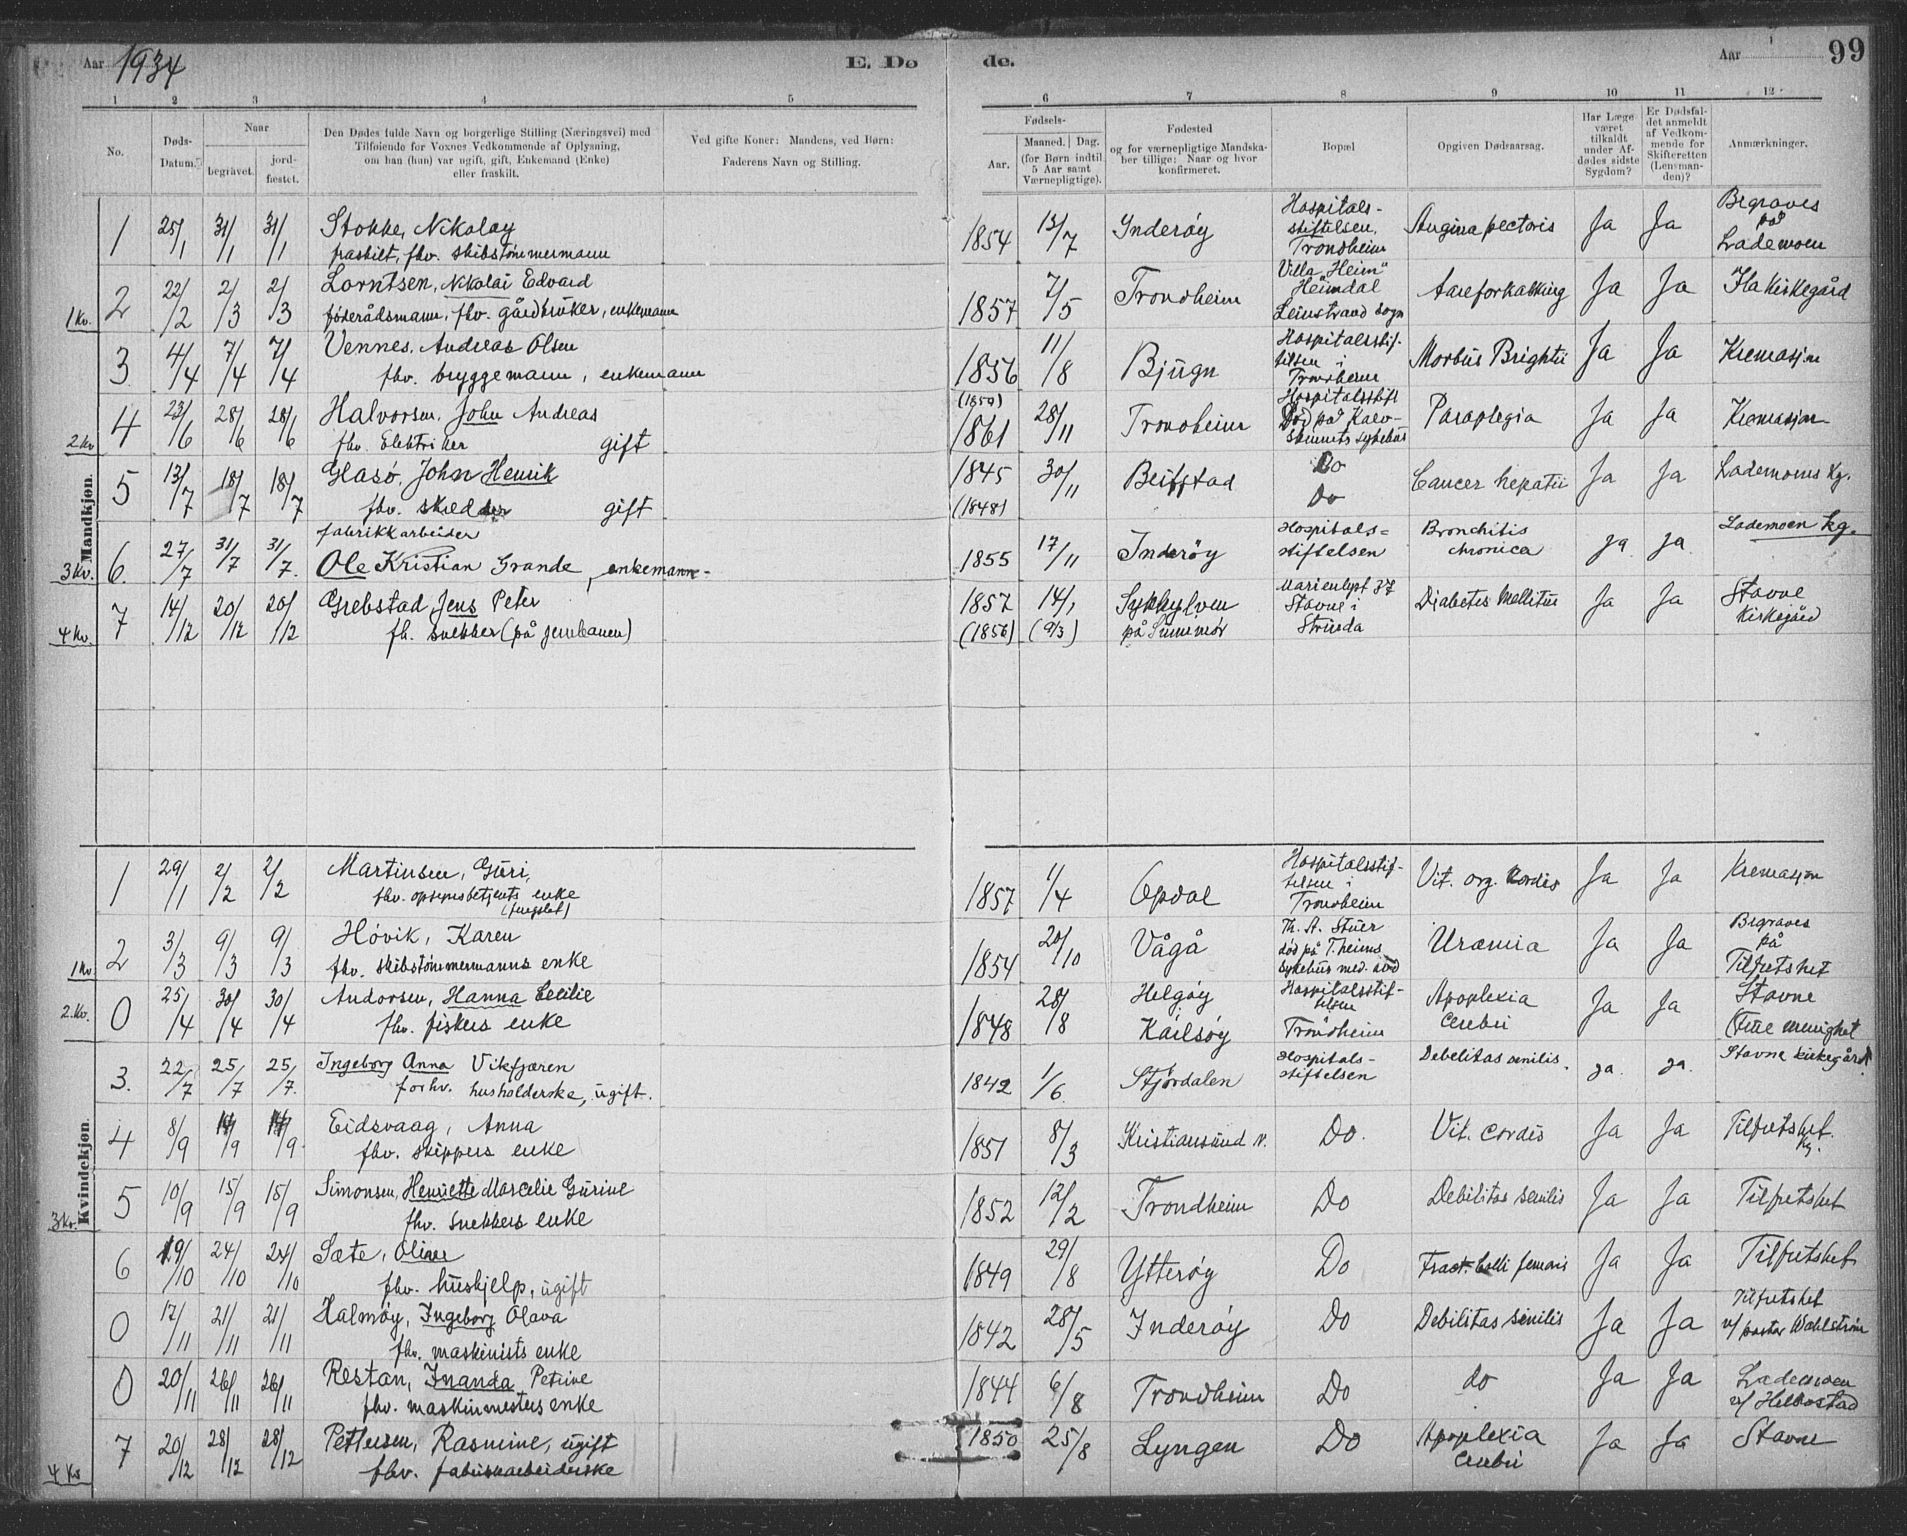 Aar 1934
E. Dø de.
Aar
99
1 2 3 4 5 6 7 8 9 10 11 12
No.
Døds-
Datum.
Naar
begravet.
jord-
fæstet.
Den Dødes fulde Navn og borgerlige Stilling (Næringsvei) med
Tilføiende for Voxnes Vedkommende af Oplysning,
om han (hun) var ugift, gift, Enkemand (Enke)
eller fraskilt.
Ved gifte Koner: Mandens, ved Børn:
Faderens Navn og Stilling.
Fødsels-
Aar.
Maaned. Dag.
(for Børn indtil
5 Aar samt
Værnepligtige).
Fødested
og for værnepligtige Mandska-
ber tillige: Naar og hvor
konfirmeret.
Bopæl
Opgiven Dødsaarsag.
Har Læge
været
tilkaldt
under Af-
dødes sidste
Sygdom?
Er Dødsfal-
det anmeldt
af Vedkom-
mende for
Skifteretten
(Lensman-
den)?
Anmærkninger.
Mandkjøn.
1 25/1 31/1 31/1 Stokke, Nikolay
fraskilt, fhv. skibstømmermann
1854 13/7 Inderøy
Hospitals-
stiftelsen,
Trondheim
Angina pectoris Ja Ja
Begraves
på
Lademoen
1 kv. 2 22/2 2/3 2/3 Lorntsen, Nikolai Edvard
føderådsmann, fhv. gårdbruker, enkemann
1857 7/5 Trondheim
Villa "Heim"
Heimdal
Leinstrand sogn
Aareforkalkning Ja Ja Ila Kirkegård
3 4/4 7/4 7/4 Vennes, Andreas Olsen
fhv. bryggemann, enkemann
1856 11/8 Bjugn
Hospitalsstif-
telsen i
Trondheim
Morbus Brightii Ja Ja Kremasjon
2 kv 4 23/6 28/6 28/6 Halvorsen, John Andreas
fhv. Elektriker gift
(1859)
1861 28/11 Trondheim
Hospitalsstift
Død på Kalv-
skinnets sykehus
Paraplegia Ja Ja Kremasjon
5 13/7 18/7 18/7 Glasø, John Henrik
fhv. skredder gift
1845 30/11 Beitstad
(1848)
Do
Do
Cancer hepatii Ja Ja Lademoens kg.
3 kv. 6. 27/7 31/7 31/7. fabrikkarbeider
Ole Kristian Grande, enkemann-
1855 17/11 Inderøy
Hospitals=
stiftelsen
Bronchitis
chronica
ja ja Lademoen kg.
4 kv. 7 14/12 20/12 20/12 Grebstad, Jens Peter
fh. snekker (på jernbanen)
1857 14/1
(1856) (9/3)
Sykkylven
på Sunnmør
Marienlyst 37
Stavne i
Strinda
Diabetes Mellitus Ja Ja
Stavne
Kirkegård
Kvindekjøn.
1 29/1 2/2 2/2 Martinsen, Guri,
fhv. opsynsbetjents enke
(fengslet)
1857 1/4 Opdal
Hospitalsstif-
telsen i
Trondheim
Vit. org. Cordis Ja Ja Kremasjon
1 kv 2 3/3 9/3 9/3 Høvik, Karen
fhv. skibstømmermanns enke
1854 20/10 Vågå
Th. A. Stuer
død på T.heims
sykehus med. avd
Uræmia Ja Ja
Begraves
på
Tilfredshet
2. kv. 0 25/4 30/4 30/4 Andorsen, Hanna Cecilie
fhv. fiskers enke
1848 28/8 Helgøy
Karlsøy
Hospitalsstif-
telsen
Trondheim
Apoplexia
Cerebri
Ja Ja
Stavne
(Frie menighet
3. 22/7 25/7 25/7. Ingeborg Anna Vikfjæren
forhv. husholderske, ugift.
1842 1/6. Stjørdalen
Hospitals-
stiftelsen
Debelitas senilis. ja. ja. Stavne kirkegård
4 8/9 14/9 14/9 Eidsvaag, Anna
fhv. skippers enke
1851 8/3 Kristiansund N. Do. Vit. Cordis Ja Ja Tilfredshet
kg.
3 kv. 5 10/9 15/9 15/9 Simonsen, Henriette Marcelie Gurine
fhv. snekkers enke
1852 12/2 Trondheim Do Debilitas senilis Ja Ja Tilfredshet
6 19/10 24/10 24/10 Sæte, Oline
fhv. hushjelp, ugift
1849 29/8 Ytterøy Do Fract. Colli femoris Ja Ja Tilfredshet
0 17/11 21/11 21/11 Halmøy, Ingeborg Olava
fhv. maskinists enke
1842 28/5 Inderøy Do Debilitas senilis Ja Ja
Tilfredshet
v/ pastor Wahlstrøm
0 20/11 26/11 26/11 Restan, Inanda Petrine
fhv. maskinmesters enke
1844 6/8 Trondheim Do do Ja Ja
Lademoen
v/ Helbostad
4 kv 7 20/12 28/12 28/12 Pettersen, Rasmine, ugift
fhv. fabrikarbeiderske
1850 25/8 Lyngen Do
Apoplexia
Cerebri
Ja Ja Stavne